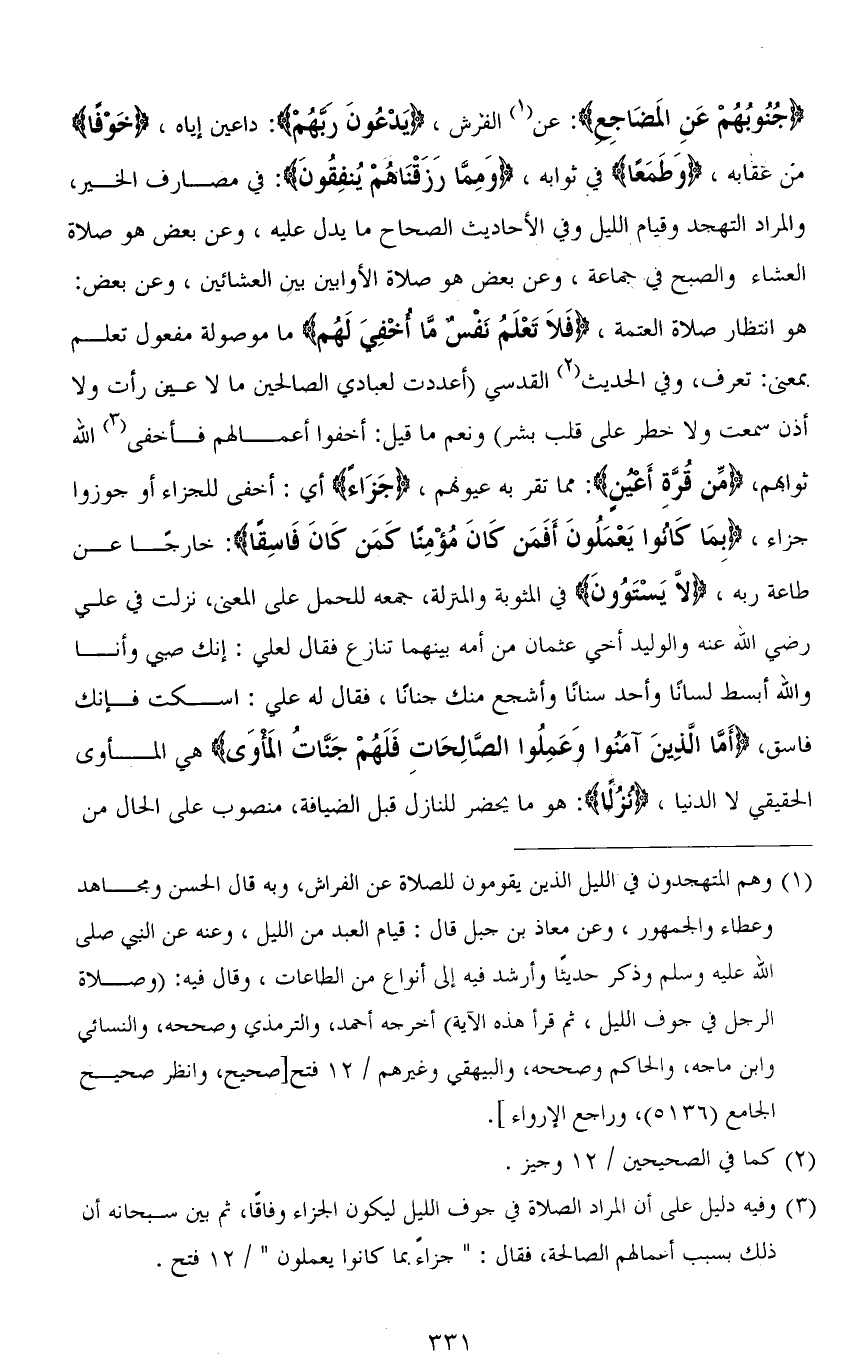 ﴿جُنُوبُهُمْ عَنِ الْمَضَاجِعِ﴾: عن(١) الفرش ، ﴿يَدْعُونَ رَبَّهُمْ﴾: داعين إياه ، ﴿خَوْفًا﴾
من عقابه ، ﴿وَطَمَعًا﴾ في ثوابه ، ﴿وَمِمَّا رَزَقْنَاهُمْ يُنفِقُونَ﴾: في مصارف الخير،
والمراد التهجد وقيام الليل وفي الأحاديث الصحاح ما يدل عليه ، وعن بعض هو صلاة
العشاء والصبح في جماعة ، وعن بعض هو صلاة الأوابين بين العشائين ، وعن بعض:
هو انتظار صلاة العتمة ، ﴿فَلاَ تَعْلَمُ نَفْسٌ مَّا أُخْفِيَ لَهُم﴾ ما موصولة مفعول تعلم
بمعنى: تعرف، وفي الحديث(٢) القدسي (أعددت لعبادي الصالحين ما لا عين رأت ولا
أذن سمعت ولا خطر على قلب بشر) ونعم ما قيل: أخفوا أعمالهم فأخفى(٣) الله
ثوابهم، ﴿مِّن قُرَّةِ أَعْيُنٍ﴾: مما تقر به عيونهم ، ﴿جَزَاءً﴾ أي : أخفى للجزاء أو جوزوا
جزاء ، ﴿بِمَا كَانُوا يَعْمَلُونَ أَفَمَن كَانَ مُؤْمِنًا كَمَن كَانَ فَاسِقًا﴾: خارجًا عن
طاعة ربه ، ﴿لاَّ يَسْتَوُونَ﴾ في المثوبة والمنزلة، جمعه للحمل على المعنى، نزلت في علي
رضي الله عنه والوليد أخي عثمان من أمه بينهما تنازع فقال لعلي : إنك صبي وأنا
والله أبسط لسانًا وأحد سنانًا وأشجع منك جنانًا ، فقال له علي : اسكت فإنك
فاسق، ﴿أَمَّا الَّذِينَ آمَنُوا وَعَمِلُوا الصَّالِحَاتِ فَلَهُمْ جَنَّاتُ الْمَأْوَى﴾ هي المأوى
الحقيقي لا الدنيا ، ﴿نُزُلًا﴾: هو ما يحضر للنازل قبل الضيافة، منصوب على الحال من
(١) وهم المتهجدون في الليل الذين يقومون للصلاة عن الفراش، وبه قال الحسن ومجاهد
وعطاء والجمهور ، وعن معاذ بن جبل قال : قيام العبد من الليل ، وعنه عن النبي صلى
الله عليه وسلم وذكر حديثًا وأرشد فيه إلى أنواع من الطاعات ، وقال فيه: (وصلاة
الرجل في جوف الليل ، ثم قرأ هذه الآية) أخرجه أحمد، والترمذي وصححه، والنسائي
وابن ماجه، والحاكم وصححه، والبيهقي وغيرهم / ١٢ فتح[صحيح، وانظر صحيح
الجامع (٥١٣٦)، وراجع الإرواء ].
(٢) كما في الصحيحين / ١٢ وجيز .
(٣) وفيه دليل على أن المراد الصلاة في جوف الليل ليكون الجزاء وفاقًا، ثم بين سبحانه أن
ذلك بسبب أعمالهم الصالحة، فقال : " جزاءً بما كانوا يعملون " / ١٢ فتح .
٣٣١